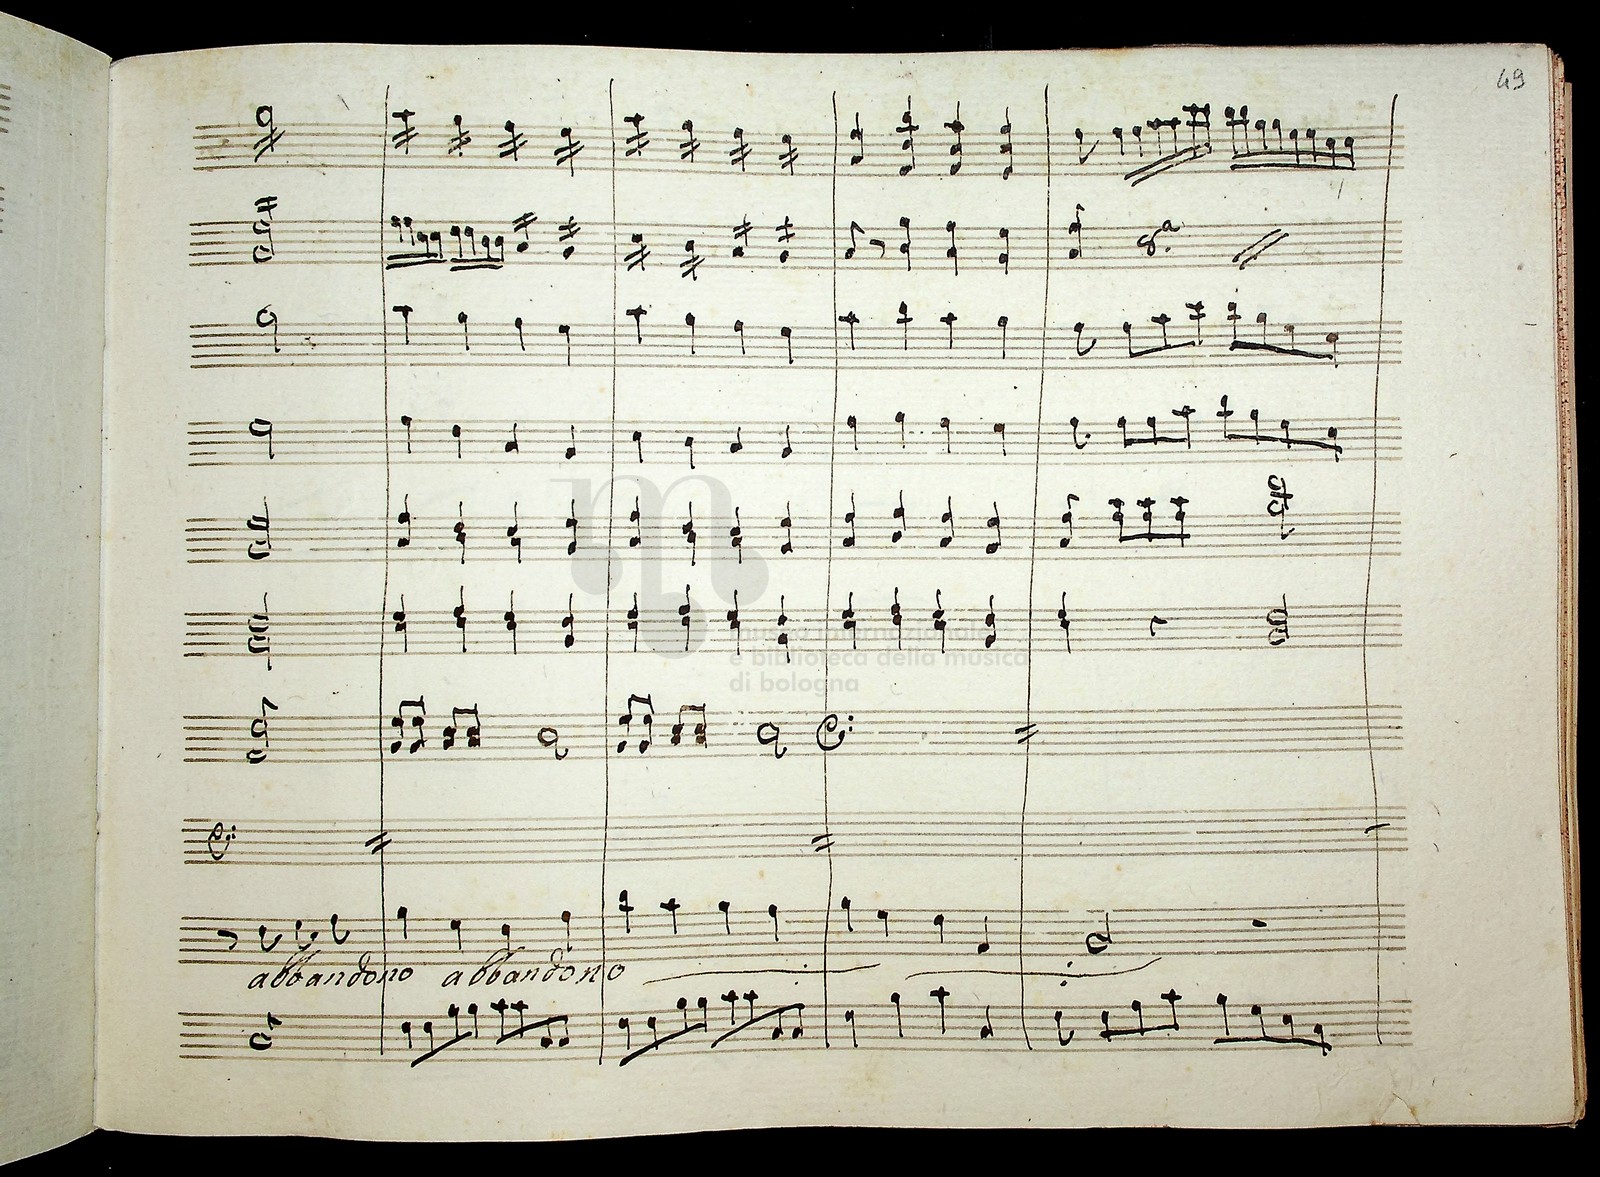 49
8.a
museo internazionale
e biblioteca della musica
di bologna
abbandono abbandono